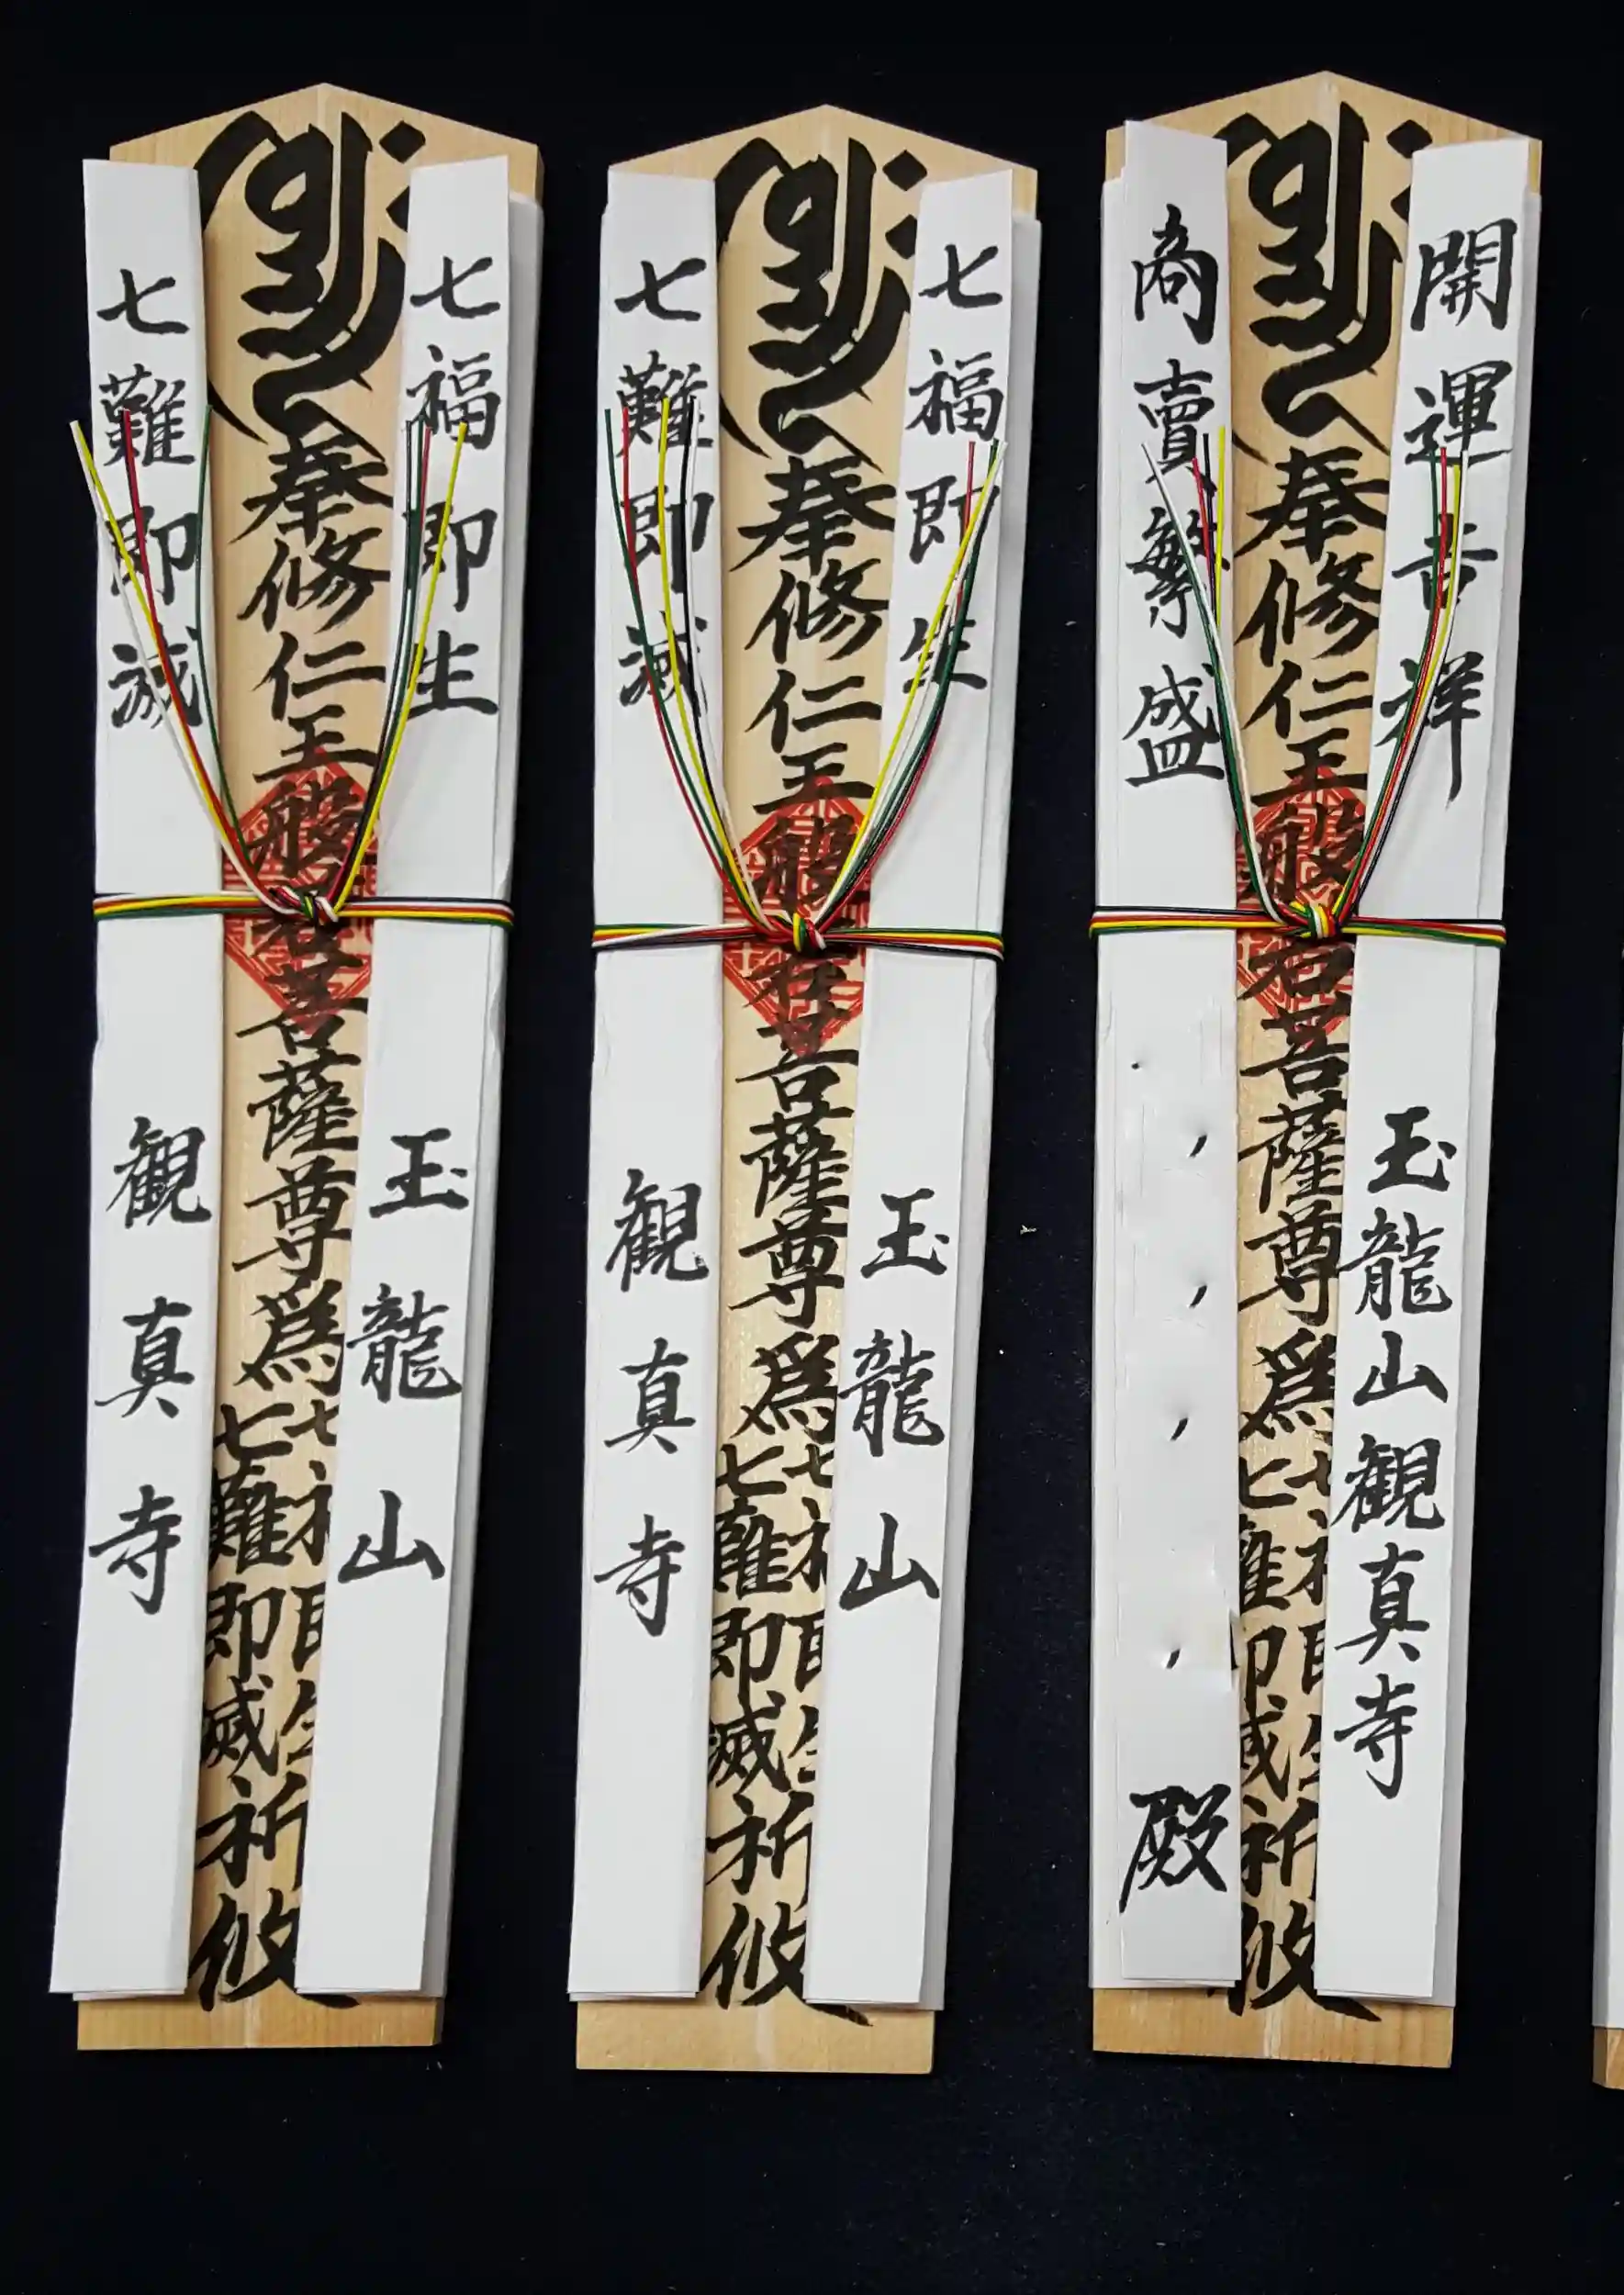 開運吉祥
玉龍山観真寺
奉修仁王般若菩薩尊爲
七難即滅
祈攸
商賣繁盛
殿
七福即生
玉龍山
奉修仁王般若菩薩尊爲
七難即滅
祈攸
七難即滅
観真寺
七福即生
玉龍山
奉修仁王般若菩薩尊爲
七難即滅
祈攸
七難即滅
観真寺